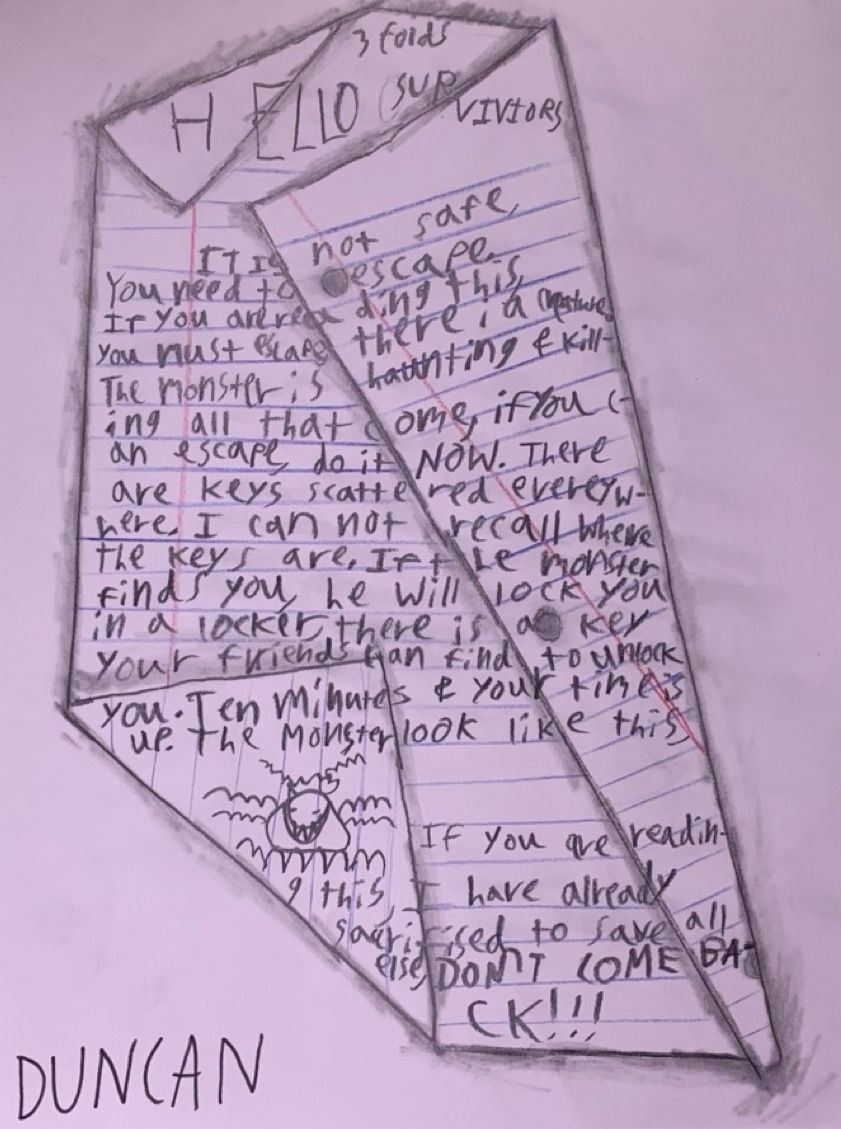 3 folds
HELLO (SUR
VIVIORS
It is not safe,
You need to escape.
If you are reading this,
you must escape, there is a creature,
The monster is haunting & kill-
ing all that come, if you c-
an escape, do it NOW. There
are keys scattered evereyw-
here, I can not recall where
the keys are. If the monster
finds you, he will lock you
in a locker, there is a key
your friends can find, to unlock
you. Ten minutes & your time is
up. The monster look like this,
If you are readin-
g this, I have already
sacrifised to save all
else, DON'T COME BA-
CK!!!
DUNCAN